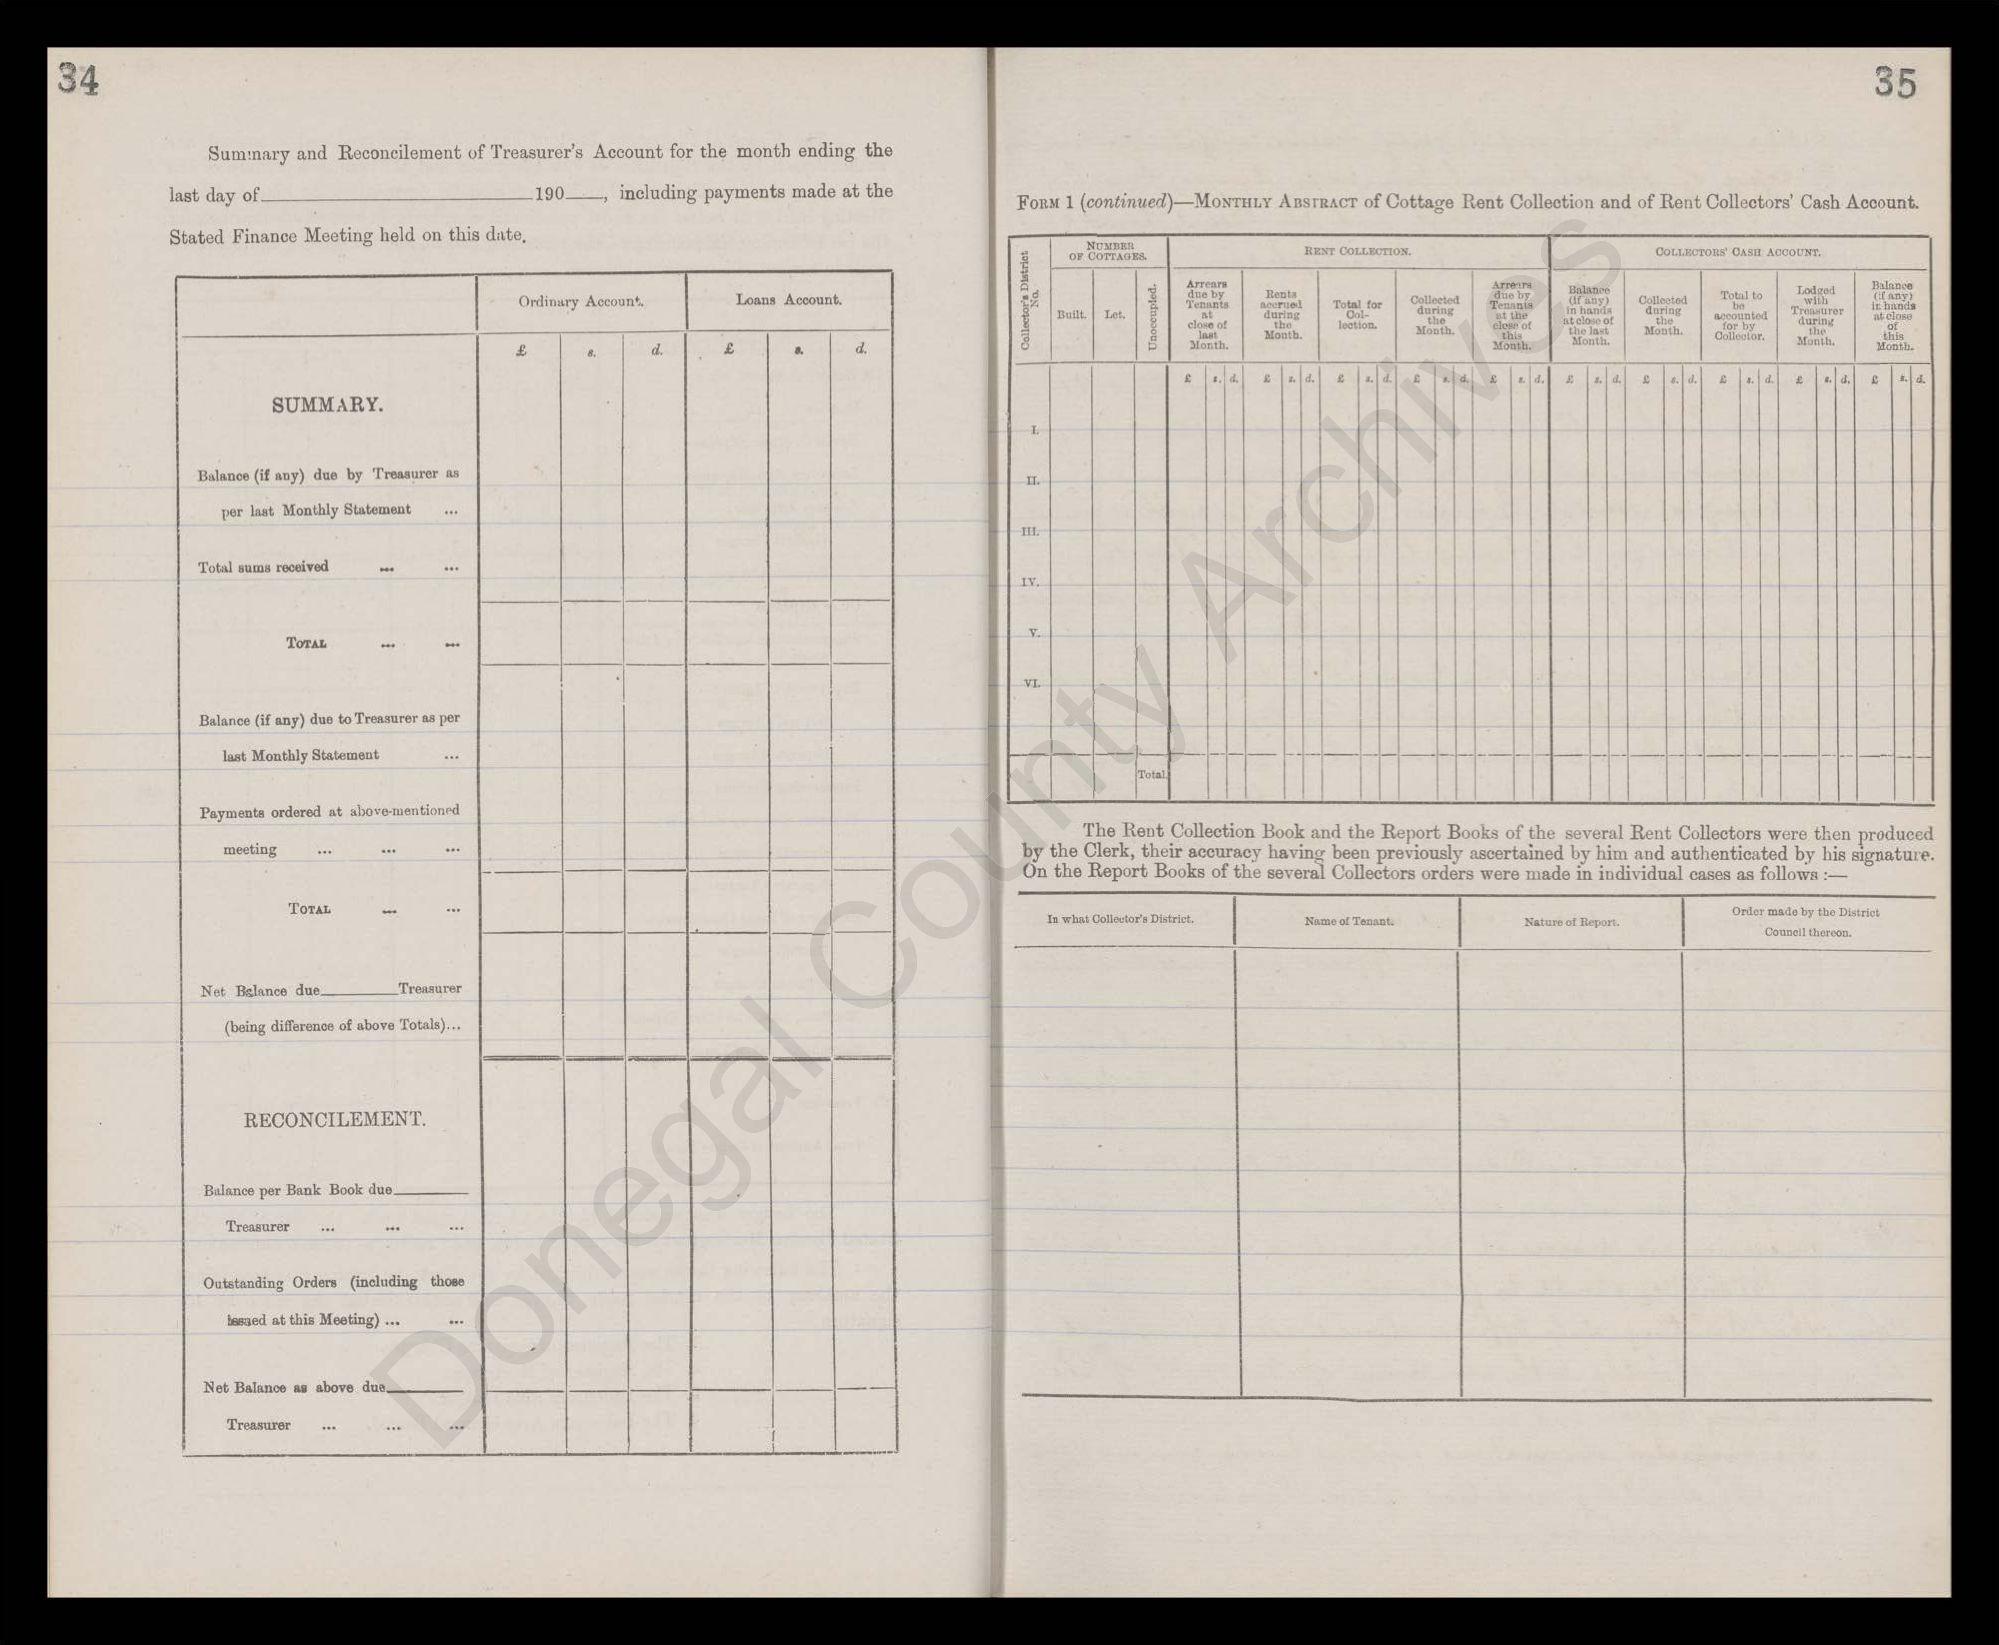 34
Summary and Reconcilement of Treasurer's Account for the month ending the
last day of 190 , including payments made at the
Stated Finance Meeting held on this date.
Ordinary Account. Loans Account.
£ s. d. £ s. d.
SUMMARY.
Balance (if any) due by Treasurer as
per last Monthly Statement ...
Total sums received ... ...
TOTAL ... ...
Balance (if any) due to Treasurer as per
last Monthly Statement ...
Payments ordered at above-mentioned
meeting ... ... ...
TOTAL ... ...
Net Balance due Treasurer
(being difference of above Totals)...
RECONCILEMENT.
Balance per Bank Book due
Treasurer ... ... ...
Outstanding Orders (including those
issued at this Meeting) ... ...
Net Balance as above due
Treasurer ... ... ...
35
FORM 1 (continued)—MONTHLY ABSTRACT of Cottage Rent Collection and of Rent Collectors' Cash Account.
Collector's District
No.
NUMBER
OF COTTAGES.
Built. Let. Unoccupied.
RENT COLLECTION.
Arrears
due by
Tenants
at
close of
last
Month.
Rents
accrued
during
the
Month.
Total for
Col-
lection.
Collected
during
the
Month.
Arrears
due by
Tenants
at the
close of
this
Month.
COLLECTORS' CASH ACCOUNT.
Balance
(if any)
in hands
at close of
the last
Month.
Collected
during
the
Month.
Total to
be
accounted
for by
Collector.
Lodged
with
Treasurer
during
the
Month.
Balance
(if any)
in hands
at close
of
this
Month.
£ s. d. £ s. d. £ s. d. £ s. d. £ s. d. £ s. d. £ s. d. £ s. d. £ s. d. £ s. d.
I.
II.
III.
IV.
V.
VI.
Total.
The Rent Collection Book and the Report Books of the several Rent Collectors were then produced
by the Clerk, their accuracy having been previously ascertained by him and authenticated by his signature.
On the Report Books of the several Collectors orders were made in individual cases as follows :—
In what Collector's District. Name of Tenant. Nature of Report. Order made by the District
Council thereon.
Donegal County Archives